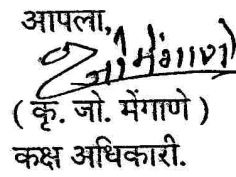 आपला,
( कृ. जो. मेंगाणे )
कक्ष अधिकारी.